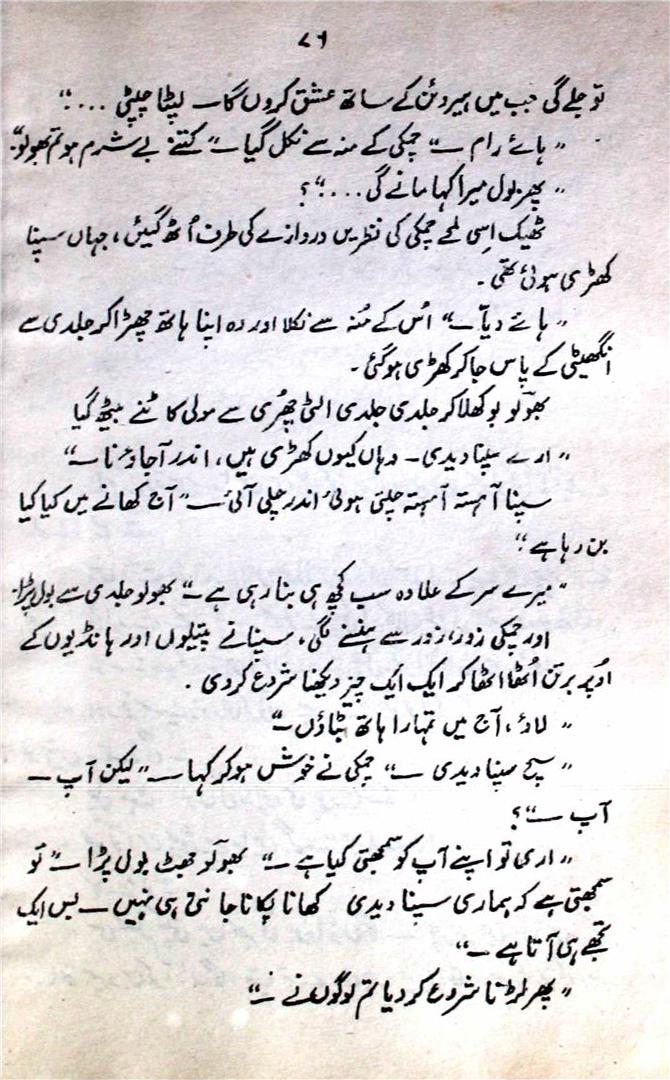 ۷۹
تو جلے گی جب میں ہیروئن کے ساتھ عشق کروں گا۔ لپٹا چپٹی ...؛“
”ہائے رام —“ چمکی کے منہ سے نکل گیا۔“ کتنے بے شرم ہو تم بھولو“
”پھر بول میرا کہا مانے گی...“؟
ٹھیک اسی لمحے چمکی کی نظریں دروازے کی طرف اُٹھ گئیں، جہاں سپنا
کھڑی ہوئی تھی۔
”ہائے دیّا —“ اُس کے مُنہ سے نکلا اور وہ اپنا ہاتھ چھڑا کر جلدی سے
انگھیٹی کے پاس جا کر کھڑی ہو گئی۔
بھولو بوکھلا کر جلدی جلدی الٹی چھُری سے مولی کاٹنے بیٹھ گیا
”ارے سپنا دیدی۔ وہاں کیوں کھڑی ہیں، اندر آجاؤ نا —“
سپنا آہستہ آہستہ چلتی ہوئی اندر چلی آئی —“ آج کھانے میں کیا کیا
بن رہا ہے“؛
”میرے سر کے علادہ سب کچھ ہی بنا رہی ہے —“ بھولو جلدی سے بول پڑا۔
اور چمکی زور، زور سے ہنسنے لگی، سپنا نے پتیلوں اور ہانڈیوں کے
اوپر برتن اُٹھا اٹھا کر ایک ایک چیز دیکھنا شروع کر دی۔
”لاؤ، آج میں تمہارا ہاتھ بٹاؤں —“
”سچ سپنا دیدی —“ چمکی نے خوش ہو کر کہا —“ لیکن آپ —
آپ —“؟
”اری تو اپنے آپ کو سمجھتی کیا ہے —“ بھولو جھٹ بول پڑا —“ تو
سمجھتی ہے کہ ہماری سپنا دیدی کھانا پکانا جانتی ہی نہیں — بس ایک
تجھے ہی آتا ہے —“
”پھر لڑنا شروع کر دیا تم لوگوں نے —“